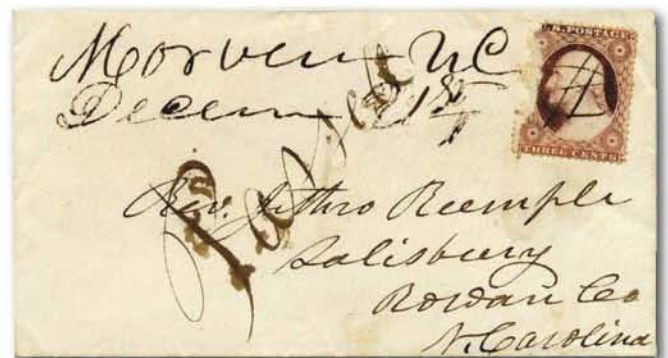 Morven NC
Decem 21st
U.S. POSTAGE
THREE CENTS
Rev. Jethro Rumple
Salisbury
Rowan Co
N. Carolina